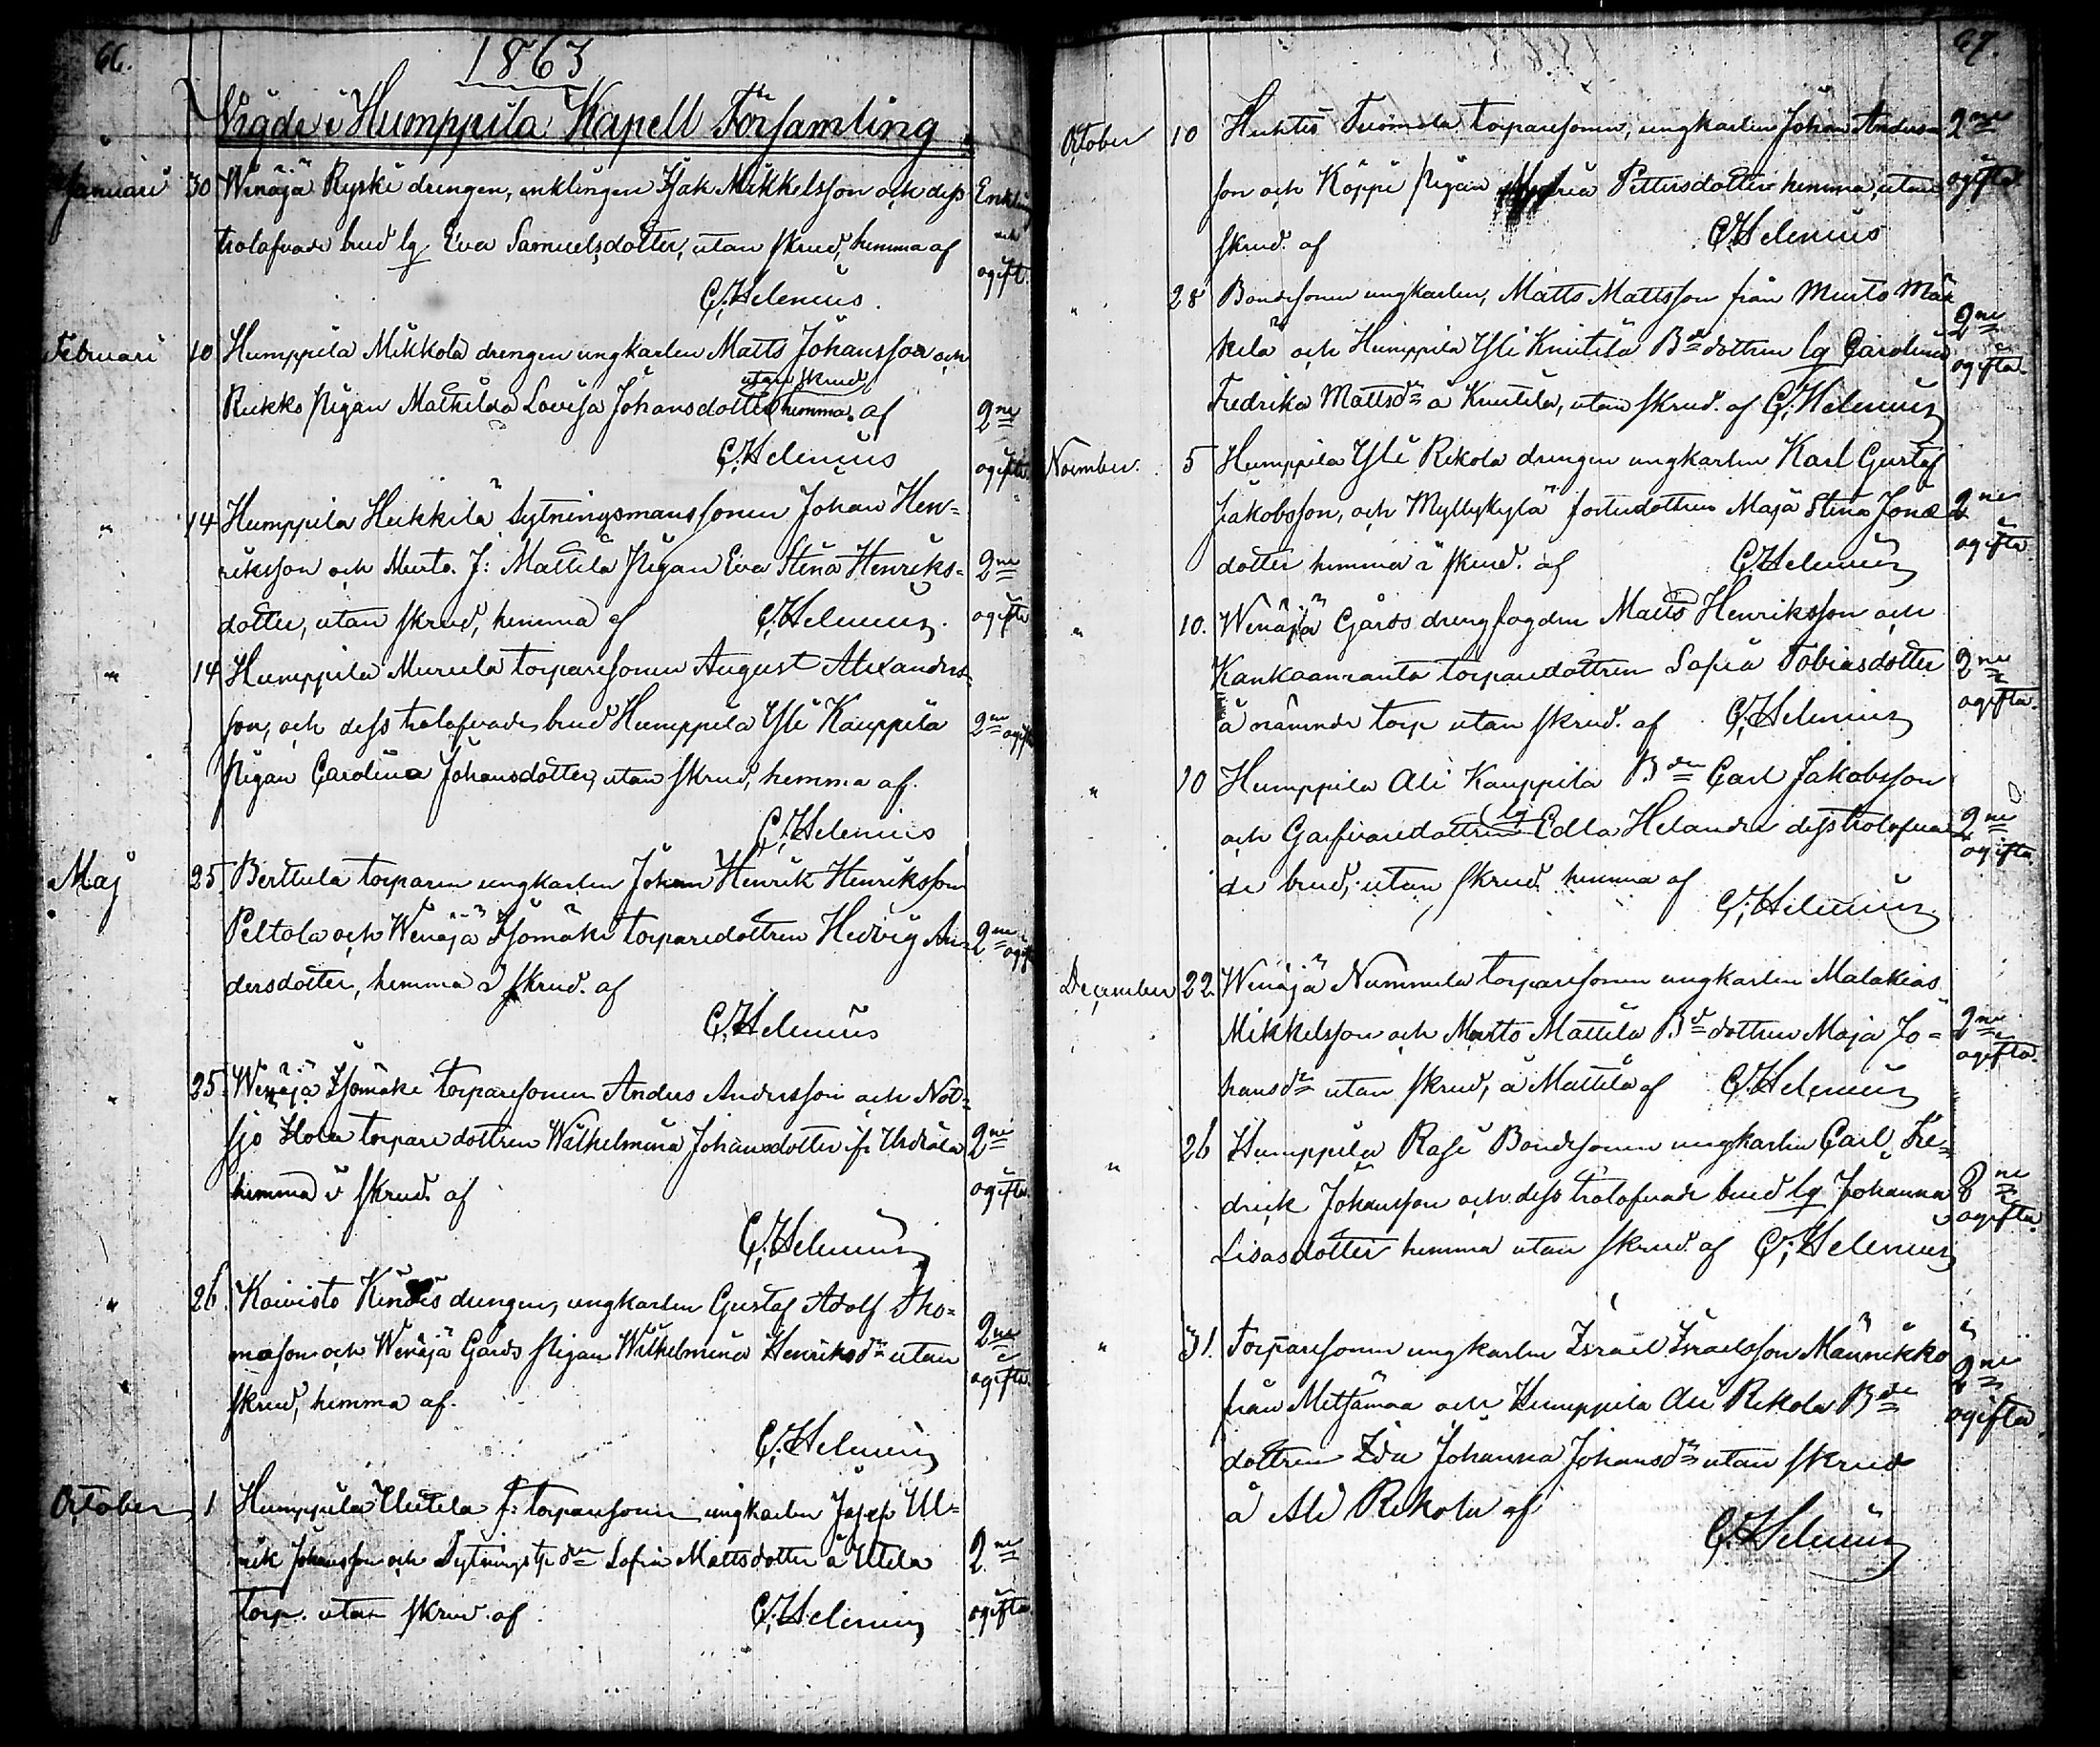 66.
1863
Vigde i Humppila Kapell Församling
Januari 30 Wenäjä Ryski drengen, enklingen Isak Mikkelsson och dess Enkling
trolofvade brud lg Eva Samuelsdotter, utan skrud, hemma af och ogift.
C. Helenius.
Februari 10 Humppila Mikkola drengen ungkarlen Matts Johansson och
utan skrud
Rukko pigan Mathilda Lovisa Johansdotter hemma af 2ne
C. Helenius ogifta
" 14 Humppila Heikkilä Sytningsmanssonen Johan Hen=
riksson och Murto J: Mattila pigan Eva Stina Henriks= 2ne
dotter, utan skrud, hemma af C. Helenius. ogifta
" 14 Humppila Murula torparesonen August Alexanders=
son, och dess trolofvade brud Humppila Yli Kauppila 2ne ogifta
pigan Carolina Johansdotter, utan skrud, hemma af
C. Helenius
Maj 25 Berttula torparen ungkarlen Johan Henrik Henriksson
Peltola och Wenäjä Isomäki torparedottren Hedvig An= 2ne ogifta
dersdotter, hemma i skrud. af
C. Helenius
" 25 Wenäjä Isomäki torparesonen Anders Andersson och Not=
sjö Hola torparedottren Wilhelmina Johansdotter fr Urdiala 2ne
hemma i skrud. af ogifta.
C. Helenius
" 26. Koivisto Kindis drengen, ungkarlen Gustaf Adolf Tho=
mason och Wenäjä Gårds pigan Wilhelmina Henriksdr utan 2ne
skrud, hemma af. ogifta.
C. Helenius
October 1 Humppila Uutela f: torparesonen ungkarlen Josef Ul=
rik Johansson och Sytningstp drn Sofia Mattsdotter å Utela 2ne
torp. utan skrud. af C. Helenius ogifta
67.
October 10 Huhtis Tuomola torparesonen, ungkarlen Johan Anders= 2ne
son och Köppi pigan Maria Pettersdotter hemma, utan ogifta.
skrud. af C. Helenius
" 28 Bondesonen ungkarlen, Matts Mattsson från Murto Mär
kelä och Humppila Yli Knuutila Bde dottren lg Carolina 2ne
Fredrika Mattsdr å Knutila, utan skrud. af C. Helenius ogifta.
November. 5 Humppila Yli Rekola drengen ungkarlen Karl Gustaf
Jakobsson, och Myllykylä fosterdottren Maja Stina Jonæ 2ne
dotter hemma i skrud. af C. Helenius ogifta
" 10. Wenäjä Gårds drengfogden Matts Henriksson och
Kankaanranta torparedottren Sofia Tobiasdotter 2ne
å nämnde torp utan skrud. af C. Helenius ogifta.
" 10 Humppila Ali Kauppila Bden Carl Jakobsson
och Garfvaredottren lg Edla Helander dess trolofva= 2ne
de brud, utan skrud hemma af ogifta.
C. Helenius
December 22. Wenäjä Nummela torparesonen ungkarlen Malakias
Mikkelsson och Murto Mattila Bde dottren Maja Jo= 2ne
hansdr utan skrud, å Mattila af C. Helenius ogifta.
" 26 Humppila Rasi Bondesonen ungkarlen Carl Fre=
drick Johansson och dess trolofvade brud lg Johanna 2ne
Lisasdotter hemma utan skrud. af C. Helenius ogifta.
" 31. Torparesonen ungkarlen Israel Israelsson Männikkö 2ne
från Metsämaa och Humppila Ali Rekola Bde ogifta
dottren Ida Johanna Johansdr utan skrud
å Ali Rekola af
C. Helenius